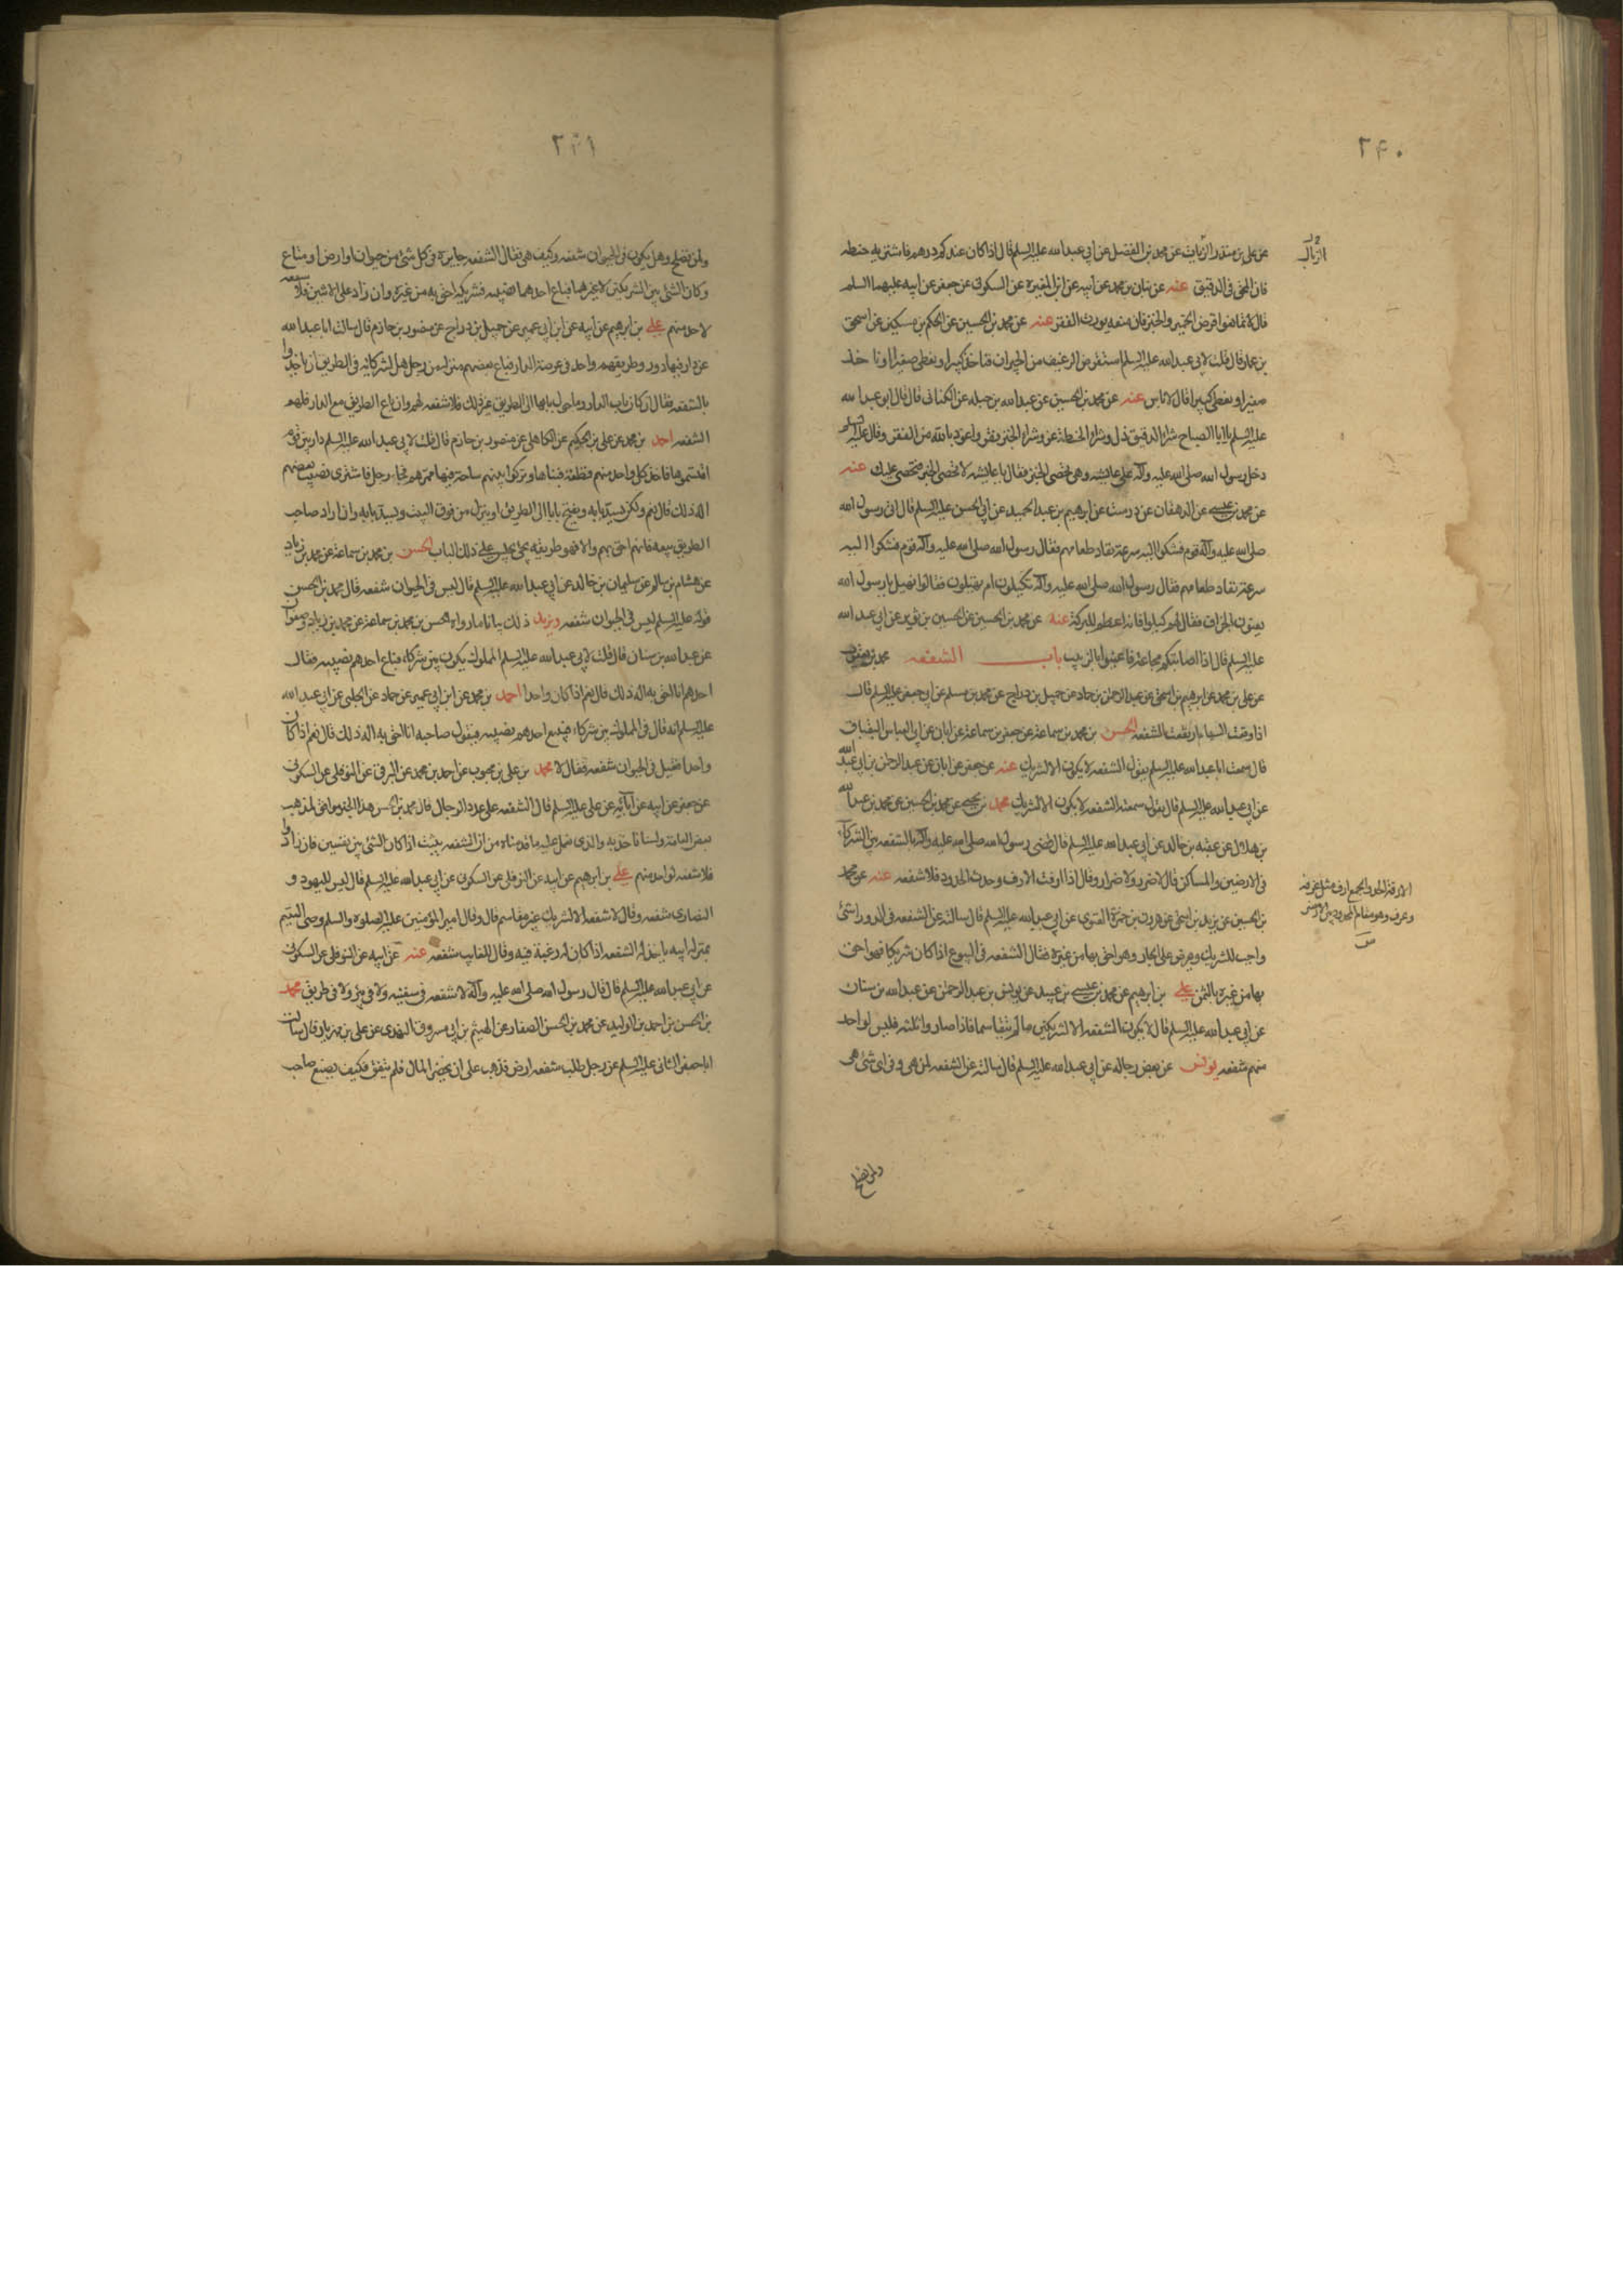 ٢٩٠
عن علي بن منذر الزيات عن محمد بن الفضيل عن ابي عبدالله عليه السلم قال اذا كان عندك درهم فاشتر به حنطه
فان المحق في الدقيق عنه عن بنان بن محمد عن ابيه عن ابن المغيرة عن السكوني عن جعفر عن ابيه عليهما السلم
قال لا تمانعوا قرض الخمير والخبز فان منعه يورث الفقر عنه عن محمد بن الحسين عن الحكم بن مسكين عن اسحق
بن عمار قال قلت لابي عبدالله عليه السلم استقرض الرغيف من الجيران فناخذ كبيرا ونعطي صغيرا وناخذ
صغيرا ونعطي كبيرا قال لا باس عنه عن محمد بن الحسين عن عبدالله بن جبله عن الكناني قال قال ابو عبدالله
عليه السلم يا ابا الصباح شراء الدقيق ذل وشراء الحنطة عز وشراء الخبز فقر واعوذ بالله من الفقر وقال عليه السلم
دخل رسول الله صلى الله عليه وآله على عائشه وهي تحصي الخبز فقال يا عايشه لا تحصي الخبز فيحصى عليك عنه
عن محمد بن عيسى عن الدهقان عن درست عن ابرهيم بن عبدالحميد عن ابي الحسن عليه السلم قال اتى رسول الله
صلى الله عليه وآله قوم فشكوا اليه سرعة نفاد طعامهم فقال رسول الله صلى الله عليه وآله قوم فشكوا اليه
سرعة نفاد طعامهم فقال رسول الله صلى الله عليه وآله تكيلون ام تهيلون فقالوا نهيل يا رسول الله
يعنون الجزاف فقال لهم كيلوا فانه اعظم للبركة عنه عن محمد بن الحسين عن الحسين بن ثوير عن ابي عبدالله
عليه السلم قال اذا اصابتكم مجاعة فاعبثوا بالزبيب باب الشفعه محمد بن يعقوب
عن علي بن محمد عن ابرهيم بن اسحق عن عبدالرحمن بن حماد عن جميل بن دراج عن محمد بن مسلم عن ابي جعفر عليه السلم قال
اذا وقعت السهام ارتفعت الشفعه الحسن بن محمد بن سماعة عن جعفر بن سماعة عن ابان عن ابي العباس البقباق
قال سمعت ابا عبدالله عليه السلم يقول الشفعه لا يكون الا لشريك عنه عن جعفر عن ابان عن عبدالرحمن بن ابي عبدالله
عن ابي عبدالله عليه السلم قال يقول سمعته الشفعه لا يكون الا لشريك محمد بن يحيى عن محمد بن الحسين عن محمد بن عبدالله
بن هلال عن عقبه بن خالد عن ابي عبدالله عليه السلم قال قضى رسول الله صلى الله عليه وآله بالشفعه بين الشركاء
في الارضين والمساكن قال لا ضرر ولا ضرار وقال اذا ارفت الارف وحدت الحدود فلا شفعه عنه عن محمد
بن الحسين عن يزيد بن اسحق عن هرون بن حمزة الغنوي عن ابي عبدالله عليه السلم قال سالته عن الشفعه في الدور اشئ
واجب للشريك ويعرض على الجار وهو احق بها من غيره فقال الشفعه في البيوع اذا كان شريكا فهو احق
بها من غيره بالثمن علي بن ابرهيم عن محمد بن عيسى بن عبيد عن يونس بن عبدالرحمن عن عبدالله بن سنان
عن ابي عبدالله عليه السلم قال لا يكون الشفعه الا لشريكين ما لم يتقاسما فاذا صاروا ثلثه فليس لواحد
منهم شفعه يونس عن بعض رجاله عن ابي عبدالله عليه السلم قال سالته عن الشفعه لمن هي وفي اي شئ هي
ولمن تصلح
الارفة الحد والجمع ارف مثل غرفة
٢٩١
ولمن تصلح وهل يكون في الحيوان شفعه وكيف هي فقال الشفعه جايزة في كل شئ من حيوان او ارض او متاع
وكان الشئ بين الشريكين لا غيرهما فباع احدهما نصيبه فشريكه احق به من غيره وان زاد على الاثنين فلا شفعه
لاحد منهم علي بن ابرهيم عن ابيه عن ابن ابي عمير عن جميل بن دراج عن منصور بن حازم قال سالت ابا عبدالله
عن دار فيها دور وطريقهم واحد في عرصة الدار فباع بعضهم منزله من رجل هل لشركائه في الطريق ان ياخذوا
بالشفعه فقال ان كان باب الدار وما حول بابها الى الطريق غير ذلك فلا شفعه لهم وان باع الطريق مع الدار فلهم
الشفعه احمد بن محمد عن علي بن الحكم عن الكاهلي عن منصور بن حازم قال قلت لابي عبدالله عليه السلم دار بين قوم
اقتسموها فاخذ كل واحد منهم قطعة فبناها وتركوا بينهم ساحة فيها ممرهم فجاء رجل فاشترى نصيب بعضهم
اله ذلك قال نعم ولكن يسد بابه ويفتح بابا الى الطريق او ينزل من فوق البيت ويسد بابه وان اراد صاحب
الطريق بيعه فانهم احق بهم والا فهو طريقه يجئ يجلس على ذلك الباب الحسن بن محمد بن سماعة عن محمد بن زياد
عن هشام بن سالم عن سليمان بن خالد عن ابي عبدالله عليه السلم قال ليس في الحيوان شفعه قال محمد بن الحسن
قوله عليه السلم ليس في الحيوان شفعه ويزيد ذلك بيانا ما رواه الحسن بن محمد بن سماعة عن محمد بن زياد وصفوان
عن عبدالله بن سنان قال قلت لابي عبدالله عليه السلم المملوك يكون بين شركاء فباع احدهم نصيبه فقال
احدهم انا احق به اله ذلك قال نعم اذا كان واحدا احمد بن محمد عن ابن ابي عمير عن حماد عن الحلبي عن ابي عبدالله
عليه السلم انه قال في المملوك بين شركاء فيبيع احدهم نصيبه فيقول صاحبه انا احق به اله ذلك قال نعم اذا كان
واحدا فقيل في الحيوان شفعه فقال لا محمد بن علي بن محبوب عن احمد بن محمد عن البرقي عن النوفلي عن السكوني
عن جعفر عن ابيه عن آبائه عن علي عليه السلم قال الشفعه على عدد الرجال قال محمد بن الحسن هذا الخبر موافق لمذهب
بعض العامة ولسنا ناخذ به والذي نعمل عليه ما قدمناه من ان الشفعه يثبت اذا كان الشئ بين نفسين فان زادوا
فلا شفعه لواحد منهم علي بن ابرهيم عن ابيه عن النوفلي عن السكوني عن ابي عبدالله عليه السلم قال ليس لليهود و
النصارى شفعه وقال لا شفعه الا لشريك غير مقاسم قال وقال امير المؤمنين عليه الصلوة والسلم وصي اليتيم
بمنزلة ابيه ياخذ له الشفعه اذا كان له رغبة فيه وقال للغايب شفعه عنه عن ابيه عن النوفلي عن السكوني
عن ابي عبدالله عليه السلم قال قال رسول الله صلى الله عليه وآله لا شفعه في سفينه ولا في نهر ولا في طريق محمد
بن الحسن بن احمد بن الوليد عن محمد بن الحسن الصفار عن الهيثم بن ابي مسروق النهدي عن علي بن مهزيار قال سالت
ابا جعفر الثاني عليه السلم عن رجل طلب شفعه ارض فذهب على ان يحضر المال فلم ينض فكيف يصنع صاحب